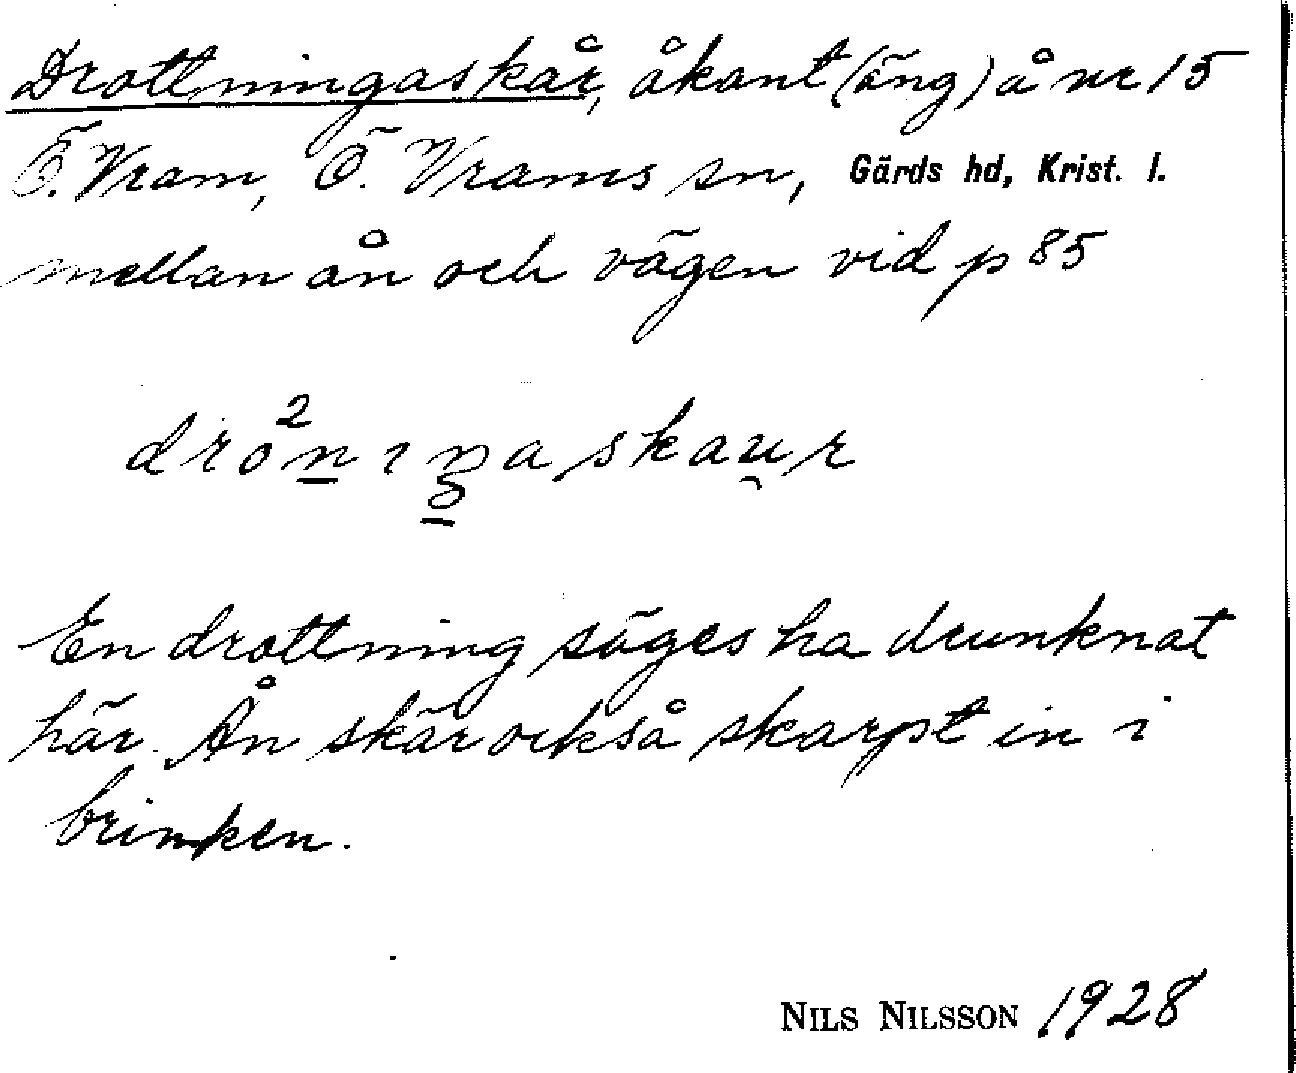 Drottningaskår, åkant (äng) å nr 15
Ö. Vram, Ö. Vrams sn, Gärds hd, Krist. l.
mellan ån och vägen vid p 85
2
drònıŋaskau̯r
En drottning säges ha drunknat
här. Ån skär också skarpt in i
brinken.
NILS NILSSON 1928